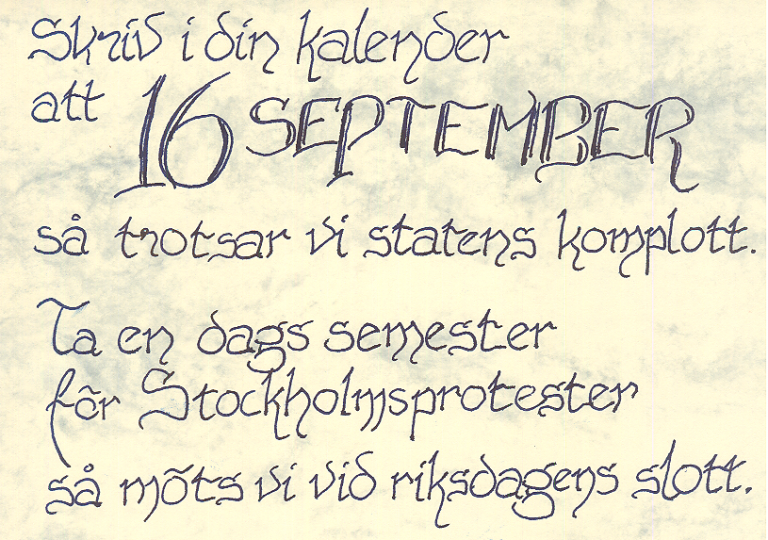 Skriv i din kalender
att 16 SEPTEMBER
så trotsar vi statens komplott.
Ta en dags semester
för Stockholmsprotester
så möts vi vid riksdagens slott.